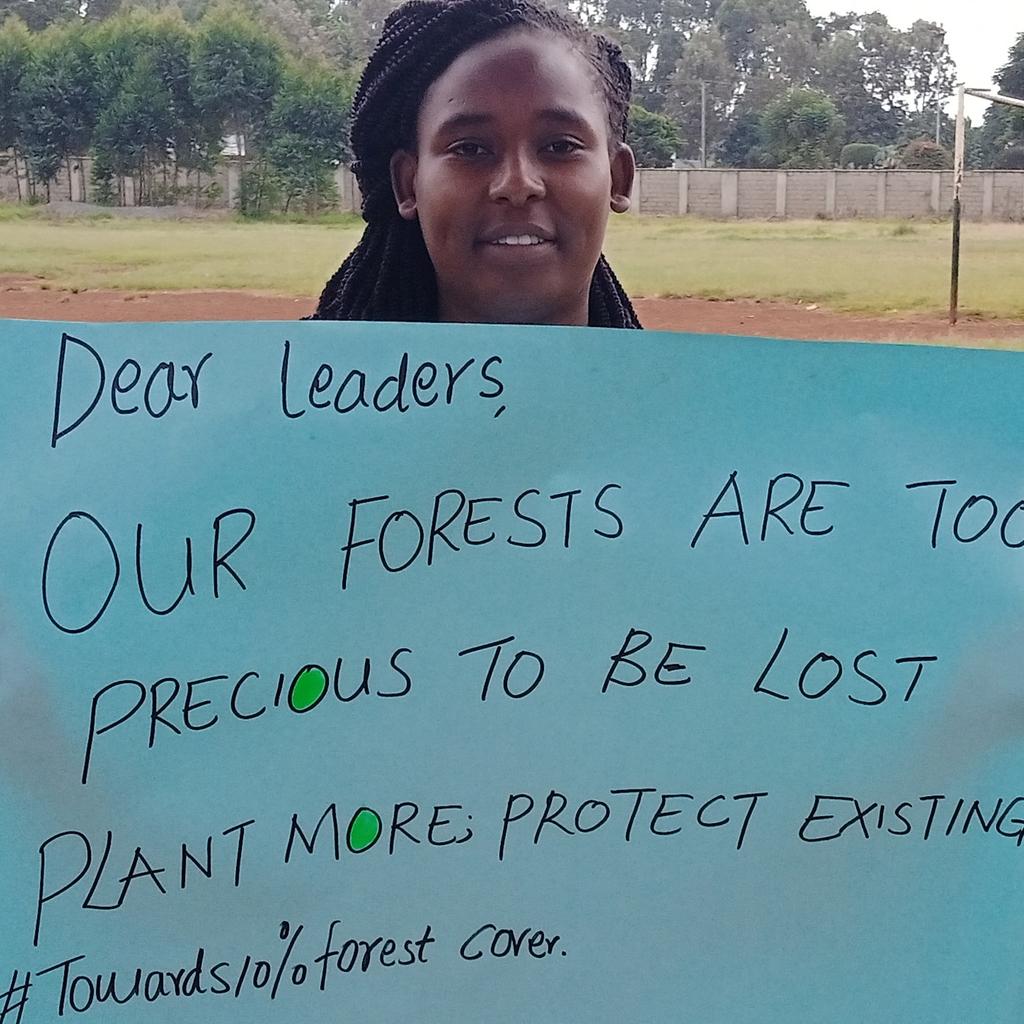 Dear Leaders,
OUR FORESTS ARE TOO
PRECIOUS TO BE LOST
PLANT MORE; PROTECT EXISTING
#Towards10%forest cover.